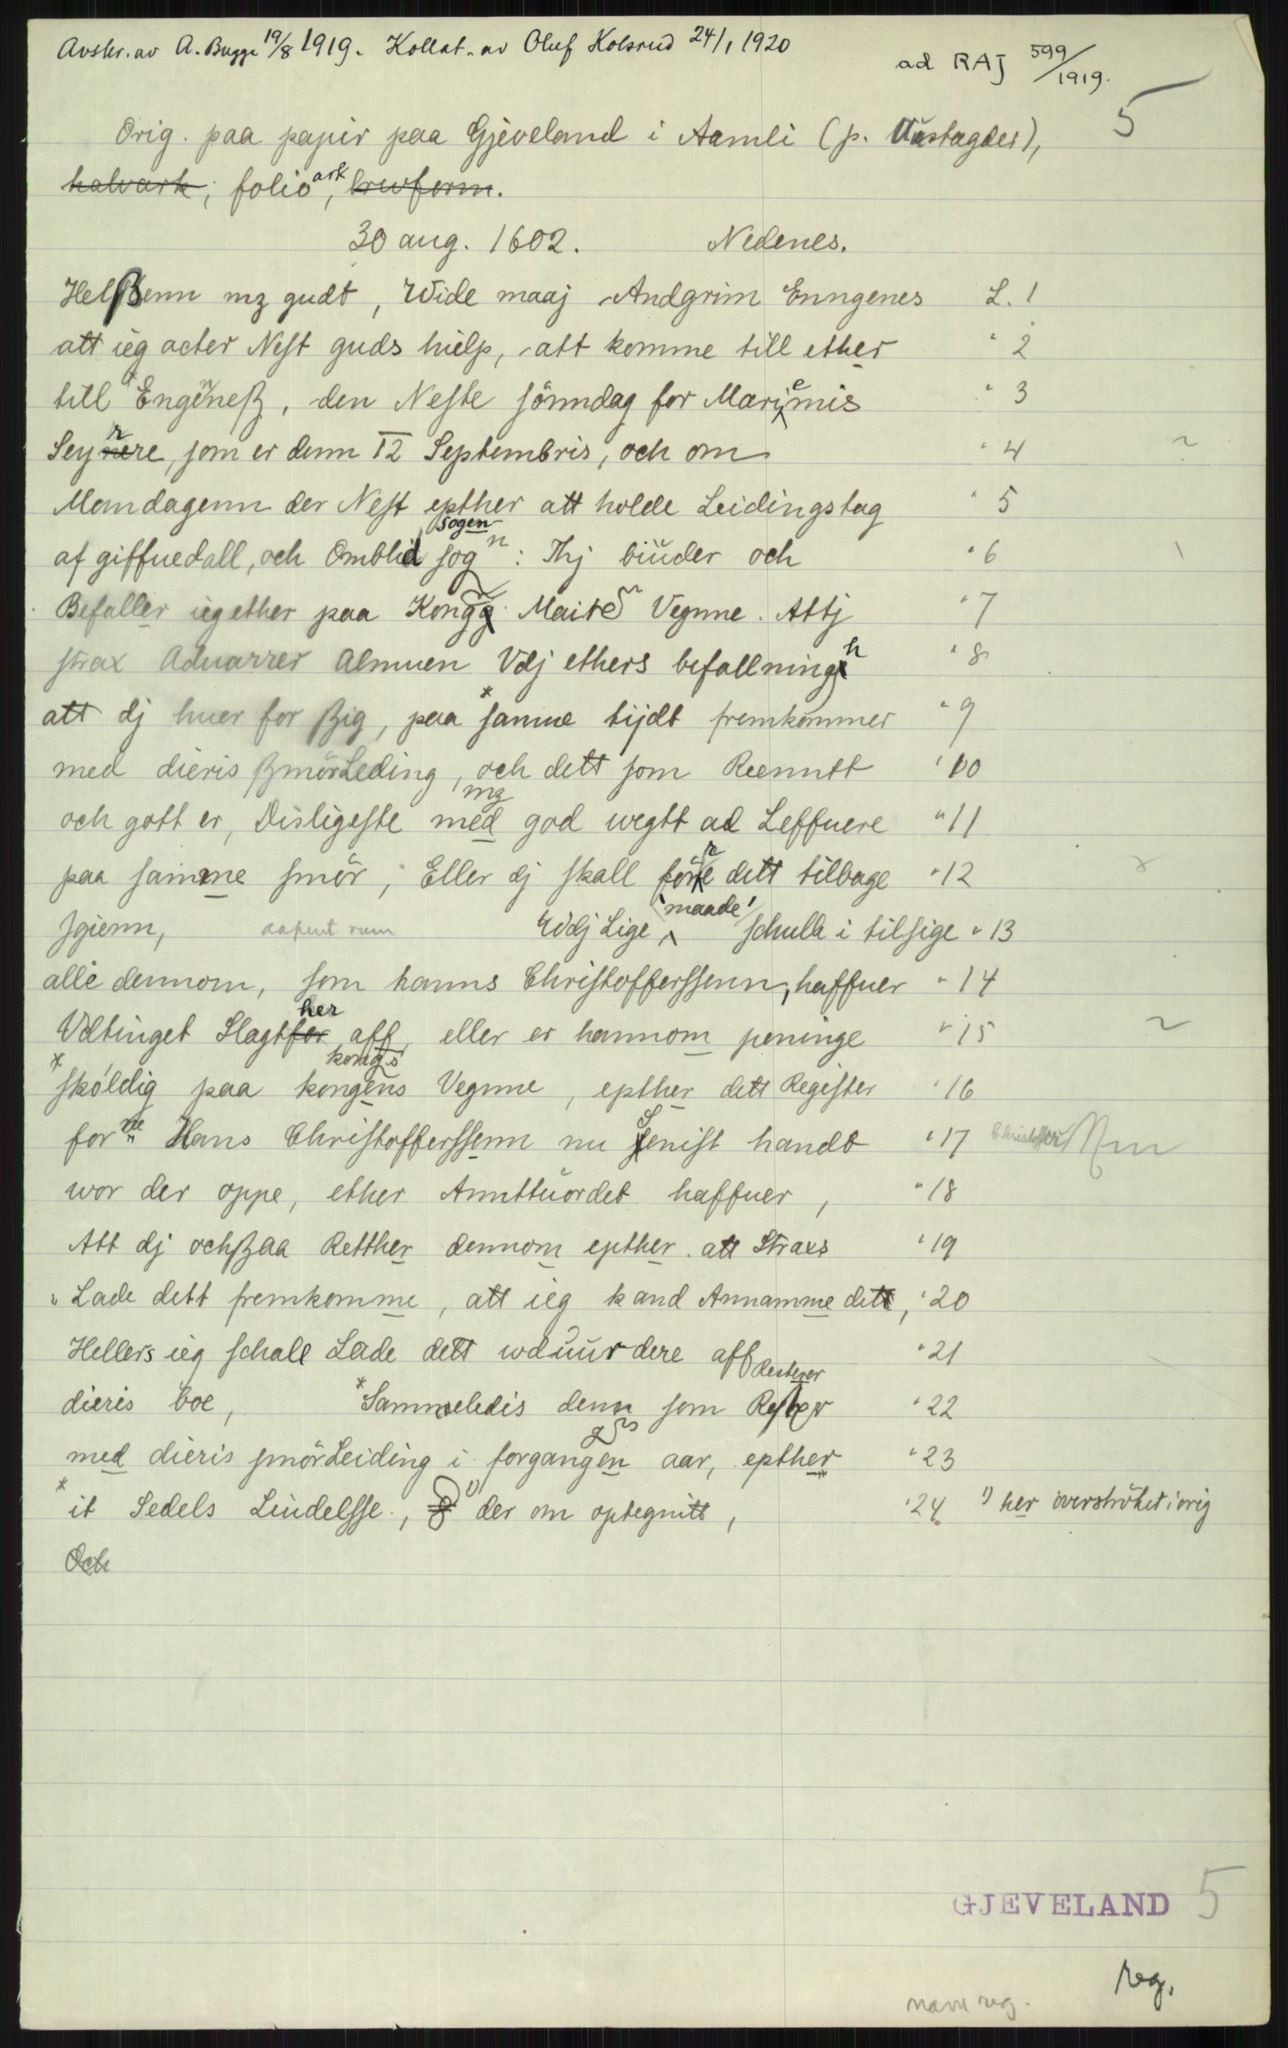 Avskr. av A. Bugge 19/8 1919. Kollat. av Oluf Kolsrud 24/1 1920
ad RAJ 599/1919.
5
Orig. paa papir paa Gjeveland i Aamli (p. Austagder),
halvark, folioark, brevform.
30 aug. 1602. Nedenes.
Helßenn mz gudt, Wide maaj Andgrim Enngenes L. 1
att ieg acter Nest guds hielp, att komme till ether " 2
till Engenneß, den Neste sönndag for Mariemis " 3
Seyrre, som er denn 12 Septembris, och om " 4
Mandagenn der Nest epther att holde Leidingstag " 5
af giffuedall, och Omblid sogn sogen : Thj biuder och " 6
Befaller ieg ether paa Kongg. Maits Vegnne. Attj " 7
strax Aduarrer Almuen Vdj ethers befallningh " 8
att dj huer for ßig, paa *samme tijdt fremkommer " 9
med dieris ßmörLeding, och dett som Reenntt " 10
och gott er, Disligeste med mz god wegtt ad Leffuere " 11
paa samme smör, Eller dj skall före dett tilbage " 12
Jgienn, aapent rum Wdj Lige 'maade' schulle i tilsige " 13
alle dennom, som hanns Christofferssenn, haffuer " 14
Vdtinget Slagtfor her aff, eller er hannom peninge " 15
*sköldig paa kongens kongs Vegnne, epther dett Register " 16
forne Hans Christofferssenn nu Senist handt " 17 Christoffer
wor der oppe, ether Annttuordet haffuer, " 18
Att dj ochßaa Retther dennom epther att Straxs " 19
Lade dett fremkomme, att ieg kand Annamme dett, " 20
Hellers ieg schall Lade dett wduurdere aff " 21
dieris boe, *Sammeledis denn som Rester Resterer " 22
med dieris smörLeiding i forgangen aar, epther " 23
*it Sedels Liudelsse, 1) der om optegnitt, " 24 1) her overströket i orig
Och
GJEVELAND 5
reg.
navnreg.